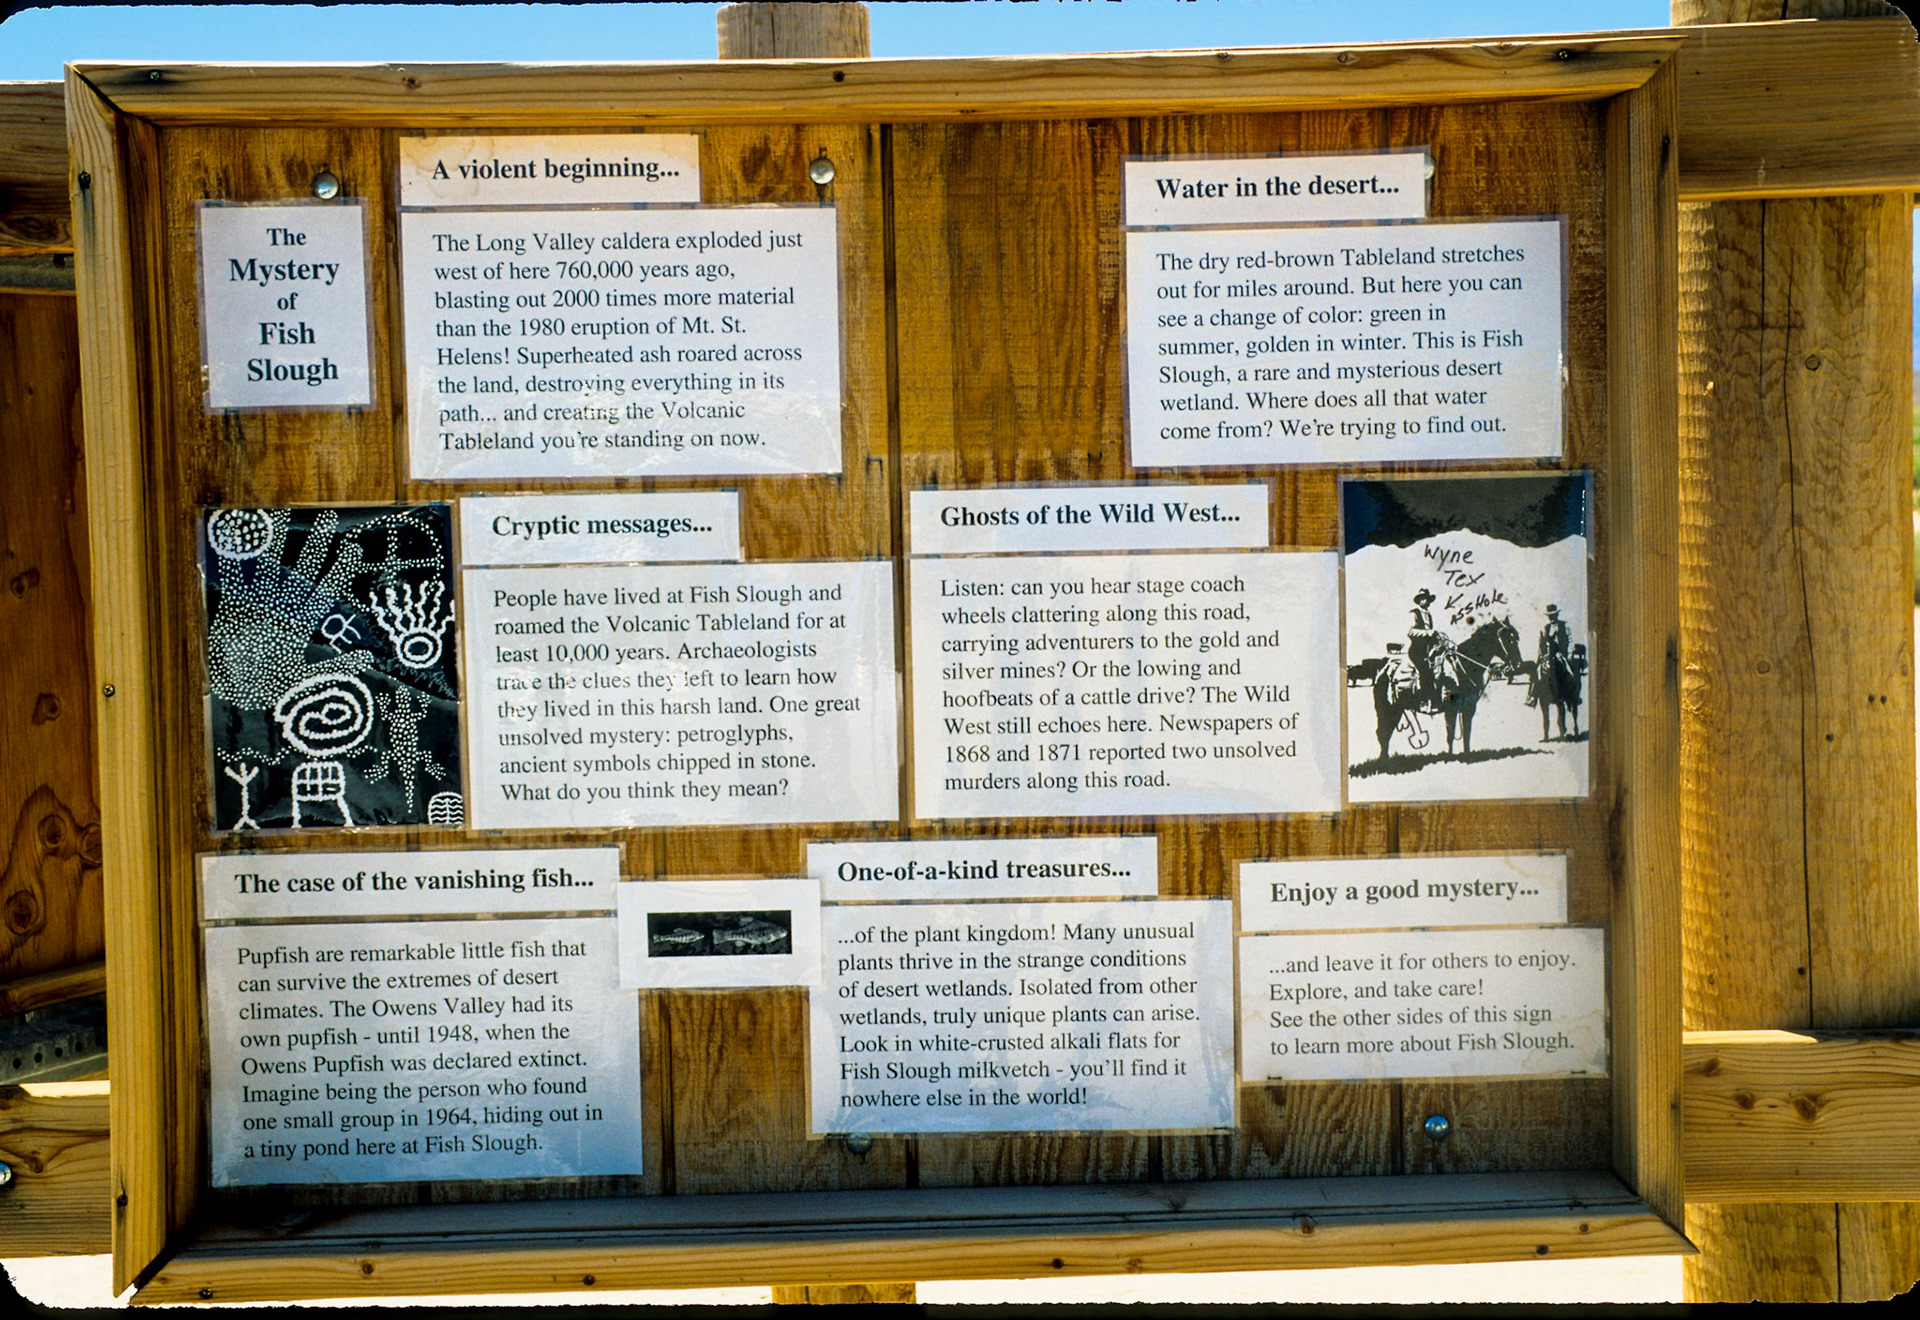 The
Mystery
of
Fish
Slough
A violent beginning...
The Long Valley caldera exploded just
west of here 760,000 years ago,
blasting out 2000 times more material
than the 1980 eruption of Mt. St.
Helens! Superheated ash roared across
the land, destroying everything in its
path... and creating the Volcanic
Tableland you're standing on now.
Water in the desert...
The dry red-brown Tableland stretches
out for miles around. But here you can
see a change of color: green in
summer, golden in winter. This is Fish
Slough, a rare and mysterious desert
wetland. Where does all that water
come from? We're trying to find out.
Cryptic messages...
People have lived at Fish Slough and
roamed the Volcanic Tableland for at
least 10,000 years. Archaeologists
trace the clues they left to learn how
they lived in this harsh land. One great
unsolved mystery: petroglyphs,
ancient symbols chipped in stone.
What do you think they mean?
Ghosts of the Wild West...
Listen: can you hear stage coach
wheels clattering along this road,
carrying adventurers to the gold and
silver mines? Or the lowing and
hoofbeats of a cattle drive? The Wild
West still echoes here. Newspapers of
1868 and 1871 reported two unsolved
murders along this road.
Wyne
Tex
AssHole
The case of the vanishing fish...
Pupfish are remarkable little fish that
can survive the extremes of desert
climates. The Owens Valley had its
own pupfish - until 1948, when the
Owens Pupfish was declared extinct.
Imagine being the person who found
one small group in 1964, hiding out in
a tiny pond here at Fish Slough.
One-of-a-kind treasures...
...of the plant kingdom! Many unusual
plants thrive in the strange conditions
of desert wetlands. Isolated from other
wetlands, truly unique plants can arise.
Look in white-crusted alkali flats for
Fish Slough milkvetch - you'll find it
nowhere else in the world!
Enjoy a good mystery...
...and leave it for others to enjoy.
Explore, and take care!
See the other sides of this sign
to learn more about Fish Slough.